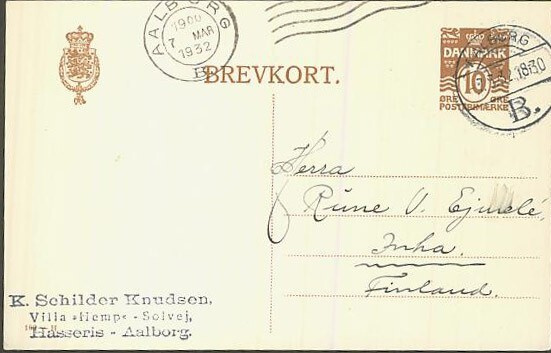 AALBORG
1900
7 MAR
1932
B
BREVKORT.
DANMARK
10
ØRE ØRE
POSTFRIMÆRKE
18:30
B.
Herra
Rune V.
Inha.
Finland.
K. Schilder Knudsen,
Villa »Hemp« - Solvej,
Hasseris - Aalborg.